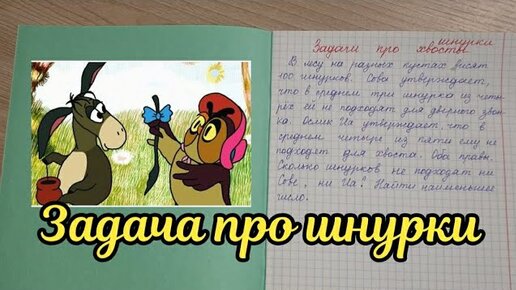 Задачи про хвосты шнурки
В лесу на разных кустах висят
100 шнурков. Сова утверждает,
что в среднем три шнурка из четы-
рёх ей не подходят для дверного звон-
ка. Ослик Иа утверждает, что в
среднем четыре из пяти ему не
подходят для хвоста. Оба правы.
Сколько шнурков не подходят ни
Сове, ни Иа? Найти наименьшее
число.
Задача про шнурки